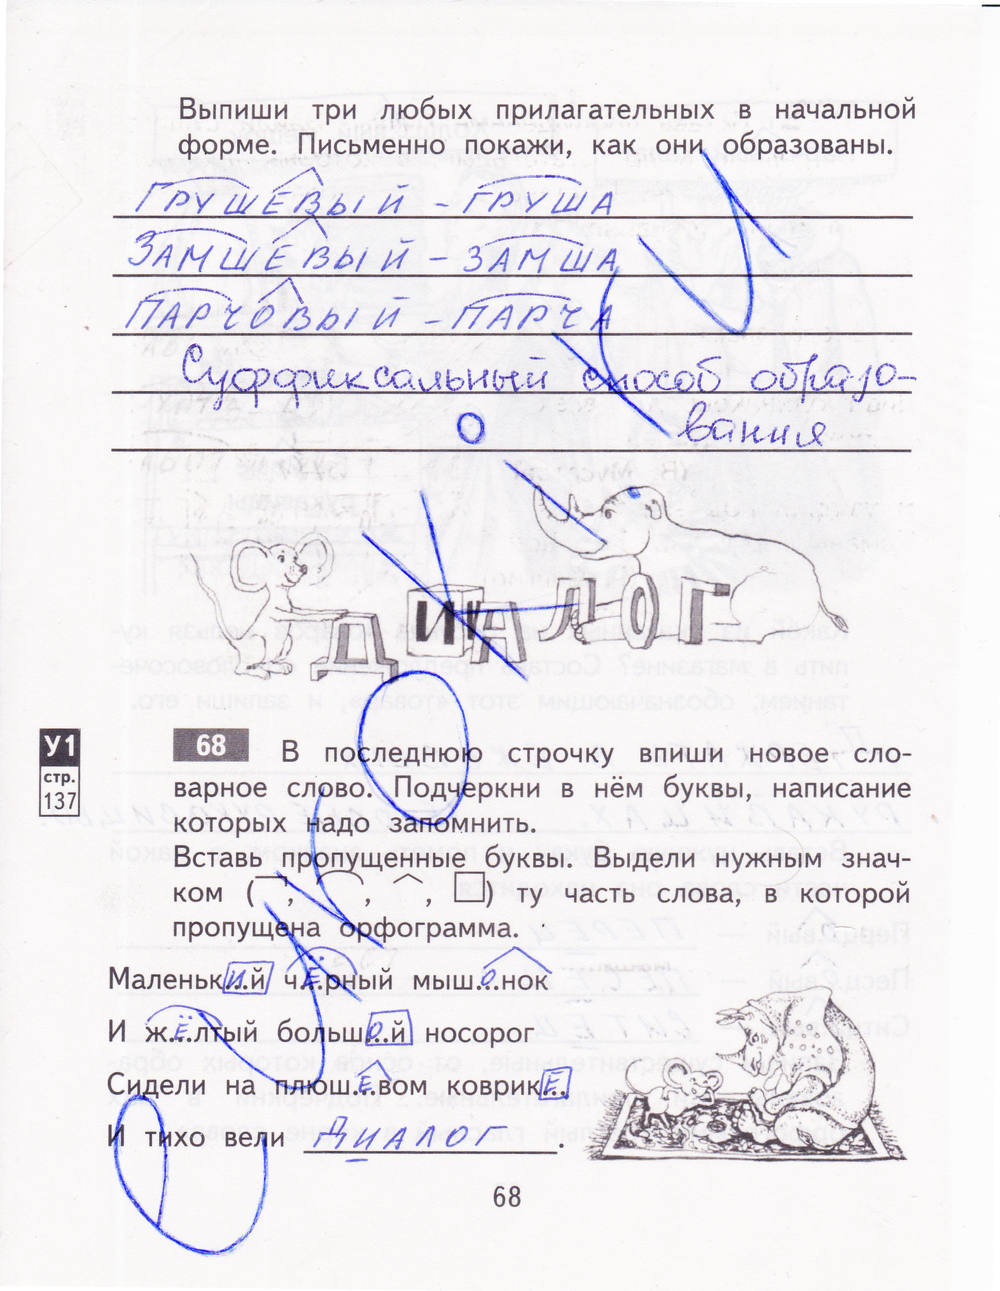 Выпиши три любых прилагательных в начальной
форме. Письменно покажи, как они образованы.
ГРУШЕВЫЙ - ГРУША
ЗАМШЕВЫЙ - ЗАМША
ПАРЧОВЫЙ - ПАРЧА
Суффиксальный способ образо-
вания
ДИАЛОГ
У1
стр.
137
68 В последнюю строчку впиши новое сло-
варное слово. Подчеркни в нём буквы, написание
которых надо запомнить.
Вставь пропущенные буквы. Выдели нужным знач-
ком (¬, ⌒, ^, □) ту часть слова, в которой
пропущена орфограмма.
Маленький чЁрный мышОнок
И жЁлтый большОй носорог
Сидели на плюшЕвом коврикЕ.
И тихо вели ДИАЛОГ.
68